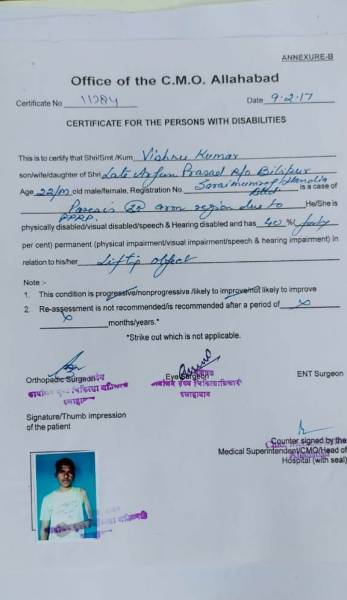 ANNEXURE-B
Office of the C.M.O. Allahabad
Certificate No 11284 Date 9-2-17
CERTIFICATE FOR THE PERSONS WITH DISABILITIES
This is to certify that Shri/Smt./Kum. Vishnu Kumar
son/wife/daughter of Shri Late Arjun Prasad R/o
Age 22/M old male/female, Registration No. is a case of
Paresis arm region due to He/She is
PPRP.
physically disabled/visual disabled/speech & Hearing disabled and has 40 %( forty
per cent) permanent (physical impairment/visual impairment/speech & hearing impairment) in
relation to his/her object
Note :-
1. This condition is progressive/nonprogressive /likely to improve/not likely to improve
2. Re-assessment is not recommended/is recommended after a period of X
X months/years.*
*Strike out which is not applicable.
Orthopadic Surgeon Eye Surgeon ENT Surgeon
कार्यालय मुख्य चिकित्साधिकारी
इलाहाबाद
Signature/Thumb impression
of the patient
Counter signed by the
Medical Superintendent/CMO/Head of
Hospital (with seal)